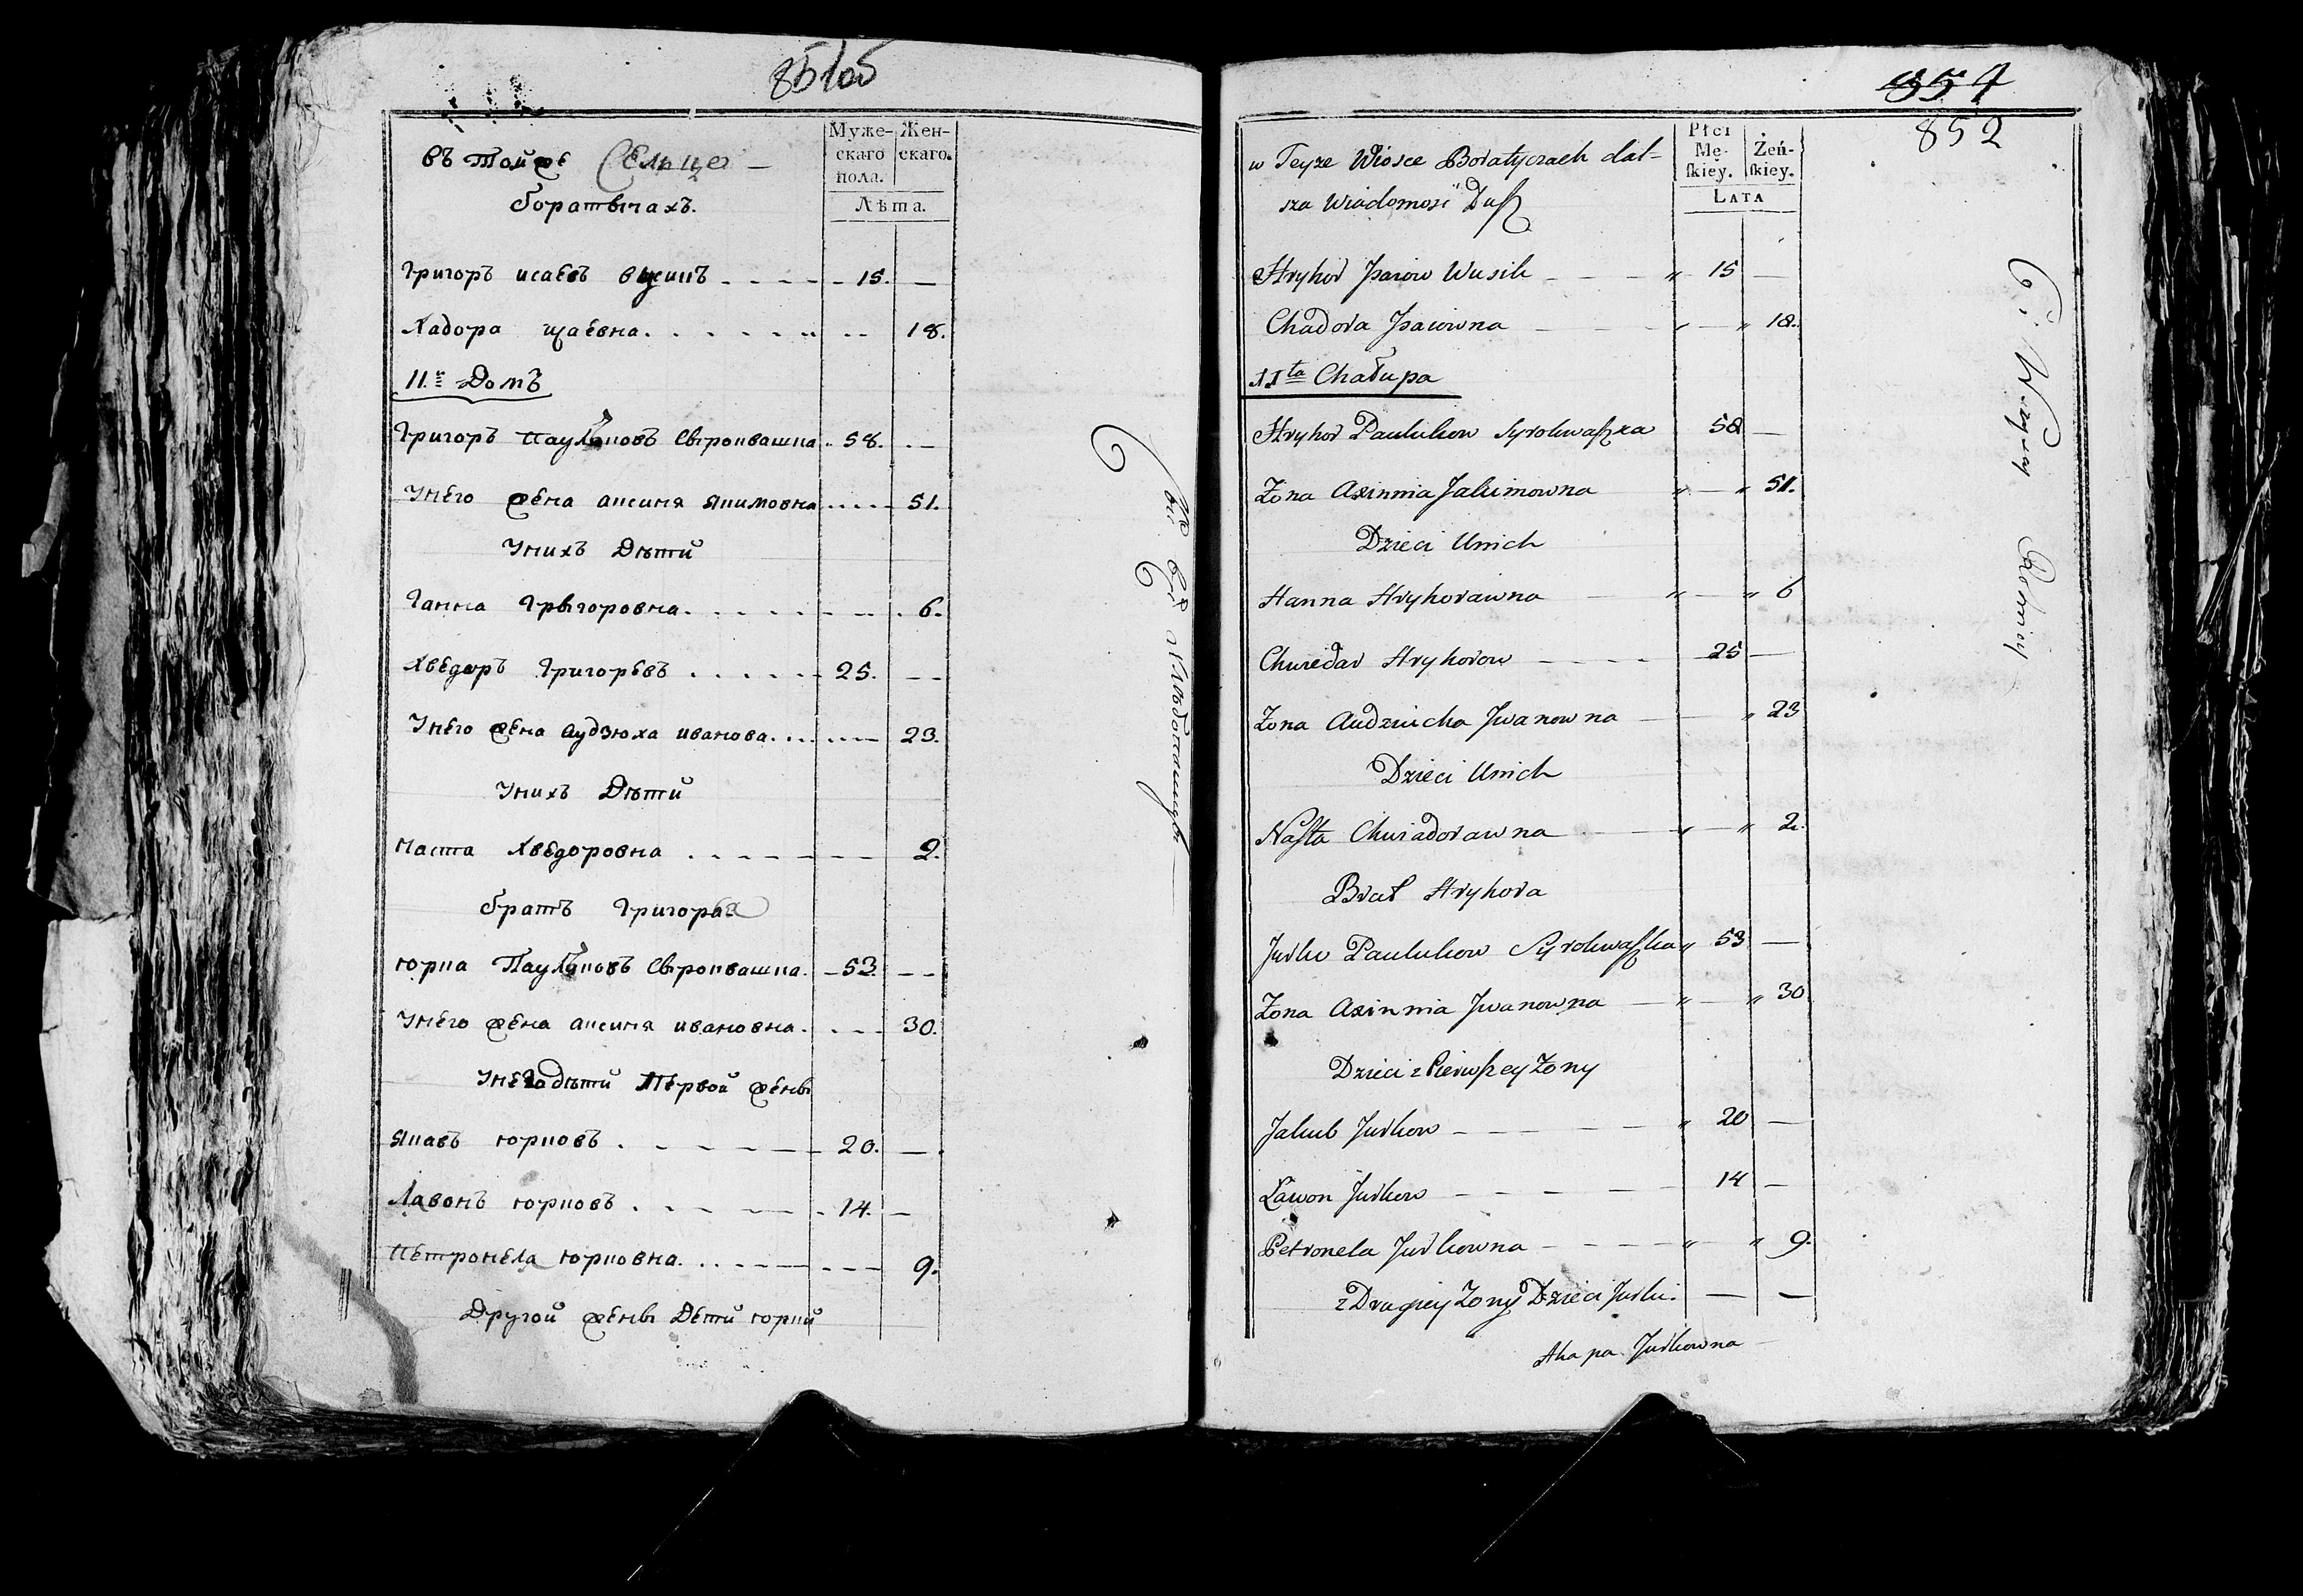 въ тойже Сельце
боратычахъ.
Муже- Жен-
скаго скаго.
пола.
Лѣта.
Григоръ исаевъ вусикъ 15. —
Хадора щаевна. 18.
11.й Домъ
Григоръ паулюковъ сыроквашка 58. —
Унего жена аксиня якимовна 51.
Унихъ Дѣти
Ганна Грыгоровна. 6.
Хведоръ Григоревъ 25. —
Унего жена аудзюха иванова. 23.
Унихъ Дѣти
Наста Хведоровна 2.
братъ Григора
юрка Паулюковъ сыроквашка. 53. —
Унего жена аксиня ивановна. 30.
Унего дѣти Первой жены
якавъ юрковъ 20. —
Лавонъ юрковъ 14. —
Петронела юрковна. 9.
Другой жены Дети юрки
852
w Teyze Wiosce Boratyczach dal-
sza Wiadomosc Dusz
Płci
Mę- Żeń-
skiey. skiey.
LATA
Hryhor Jsaiow Wusik 15 —
Chadora Jsaiowna 18.
11ta Chałupa
Hryhor Paulukow Syrokwaszka 58 —
Zona Axinnia Jakimowna 51.
Dzieci Unich
Hanna Hryhorawna 6
Chwiedar Hryhorow 25 —
Zona Audziucha Jwanowna 23
Dzieci Unich
Nasta Chwiadorawna 2.
Brat Hryhora
Jurko Paulukow Syrokwaszka 53 —
Zona Axinnia Jwanowna 30
Dzieci z Pierwszey Zony
Jakub Jurkow 20 —
Ławon Jurkow 14 —
Petronela Jurkowna 9.
z Drugiey Zony Dzieci Jurki. — —
Ahapa Jurkowna